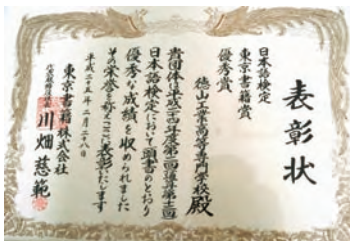 表彰状
日本語検定
東京書籍賞
優秀賞
徳山工業高等専門学校殿
貴団体は平成二十四年度第二回通算第十二回
日本語検定において頭書のとおり
優秀な成績を収められました
その栄誉を称えここに表彰いたします
平成二十五年二月二十八日
東京書籍株式会社
代表取締役社長 川畑慈範